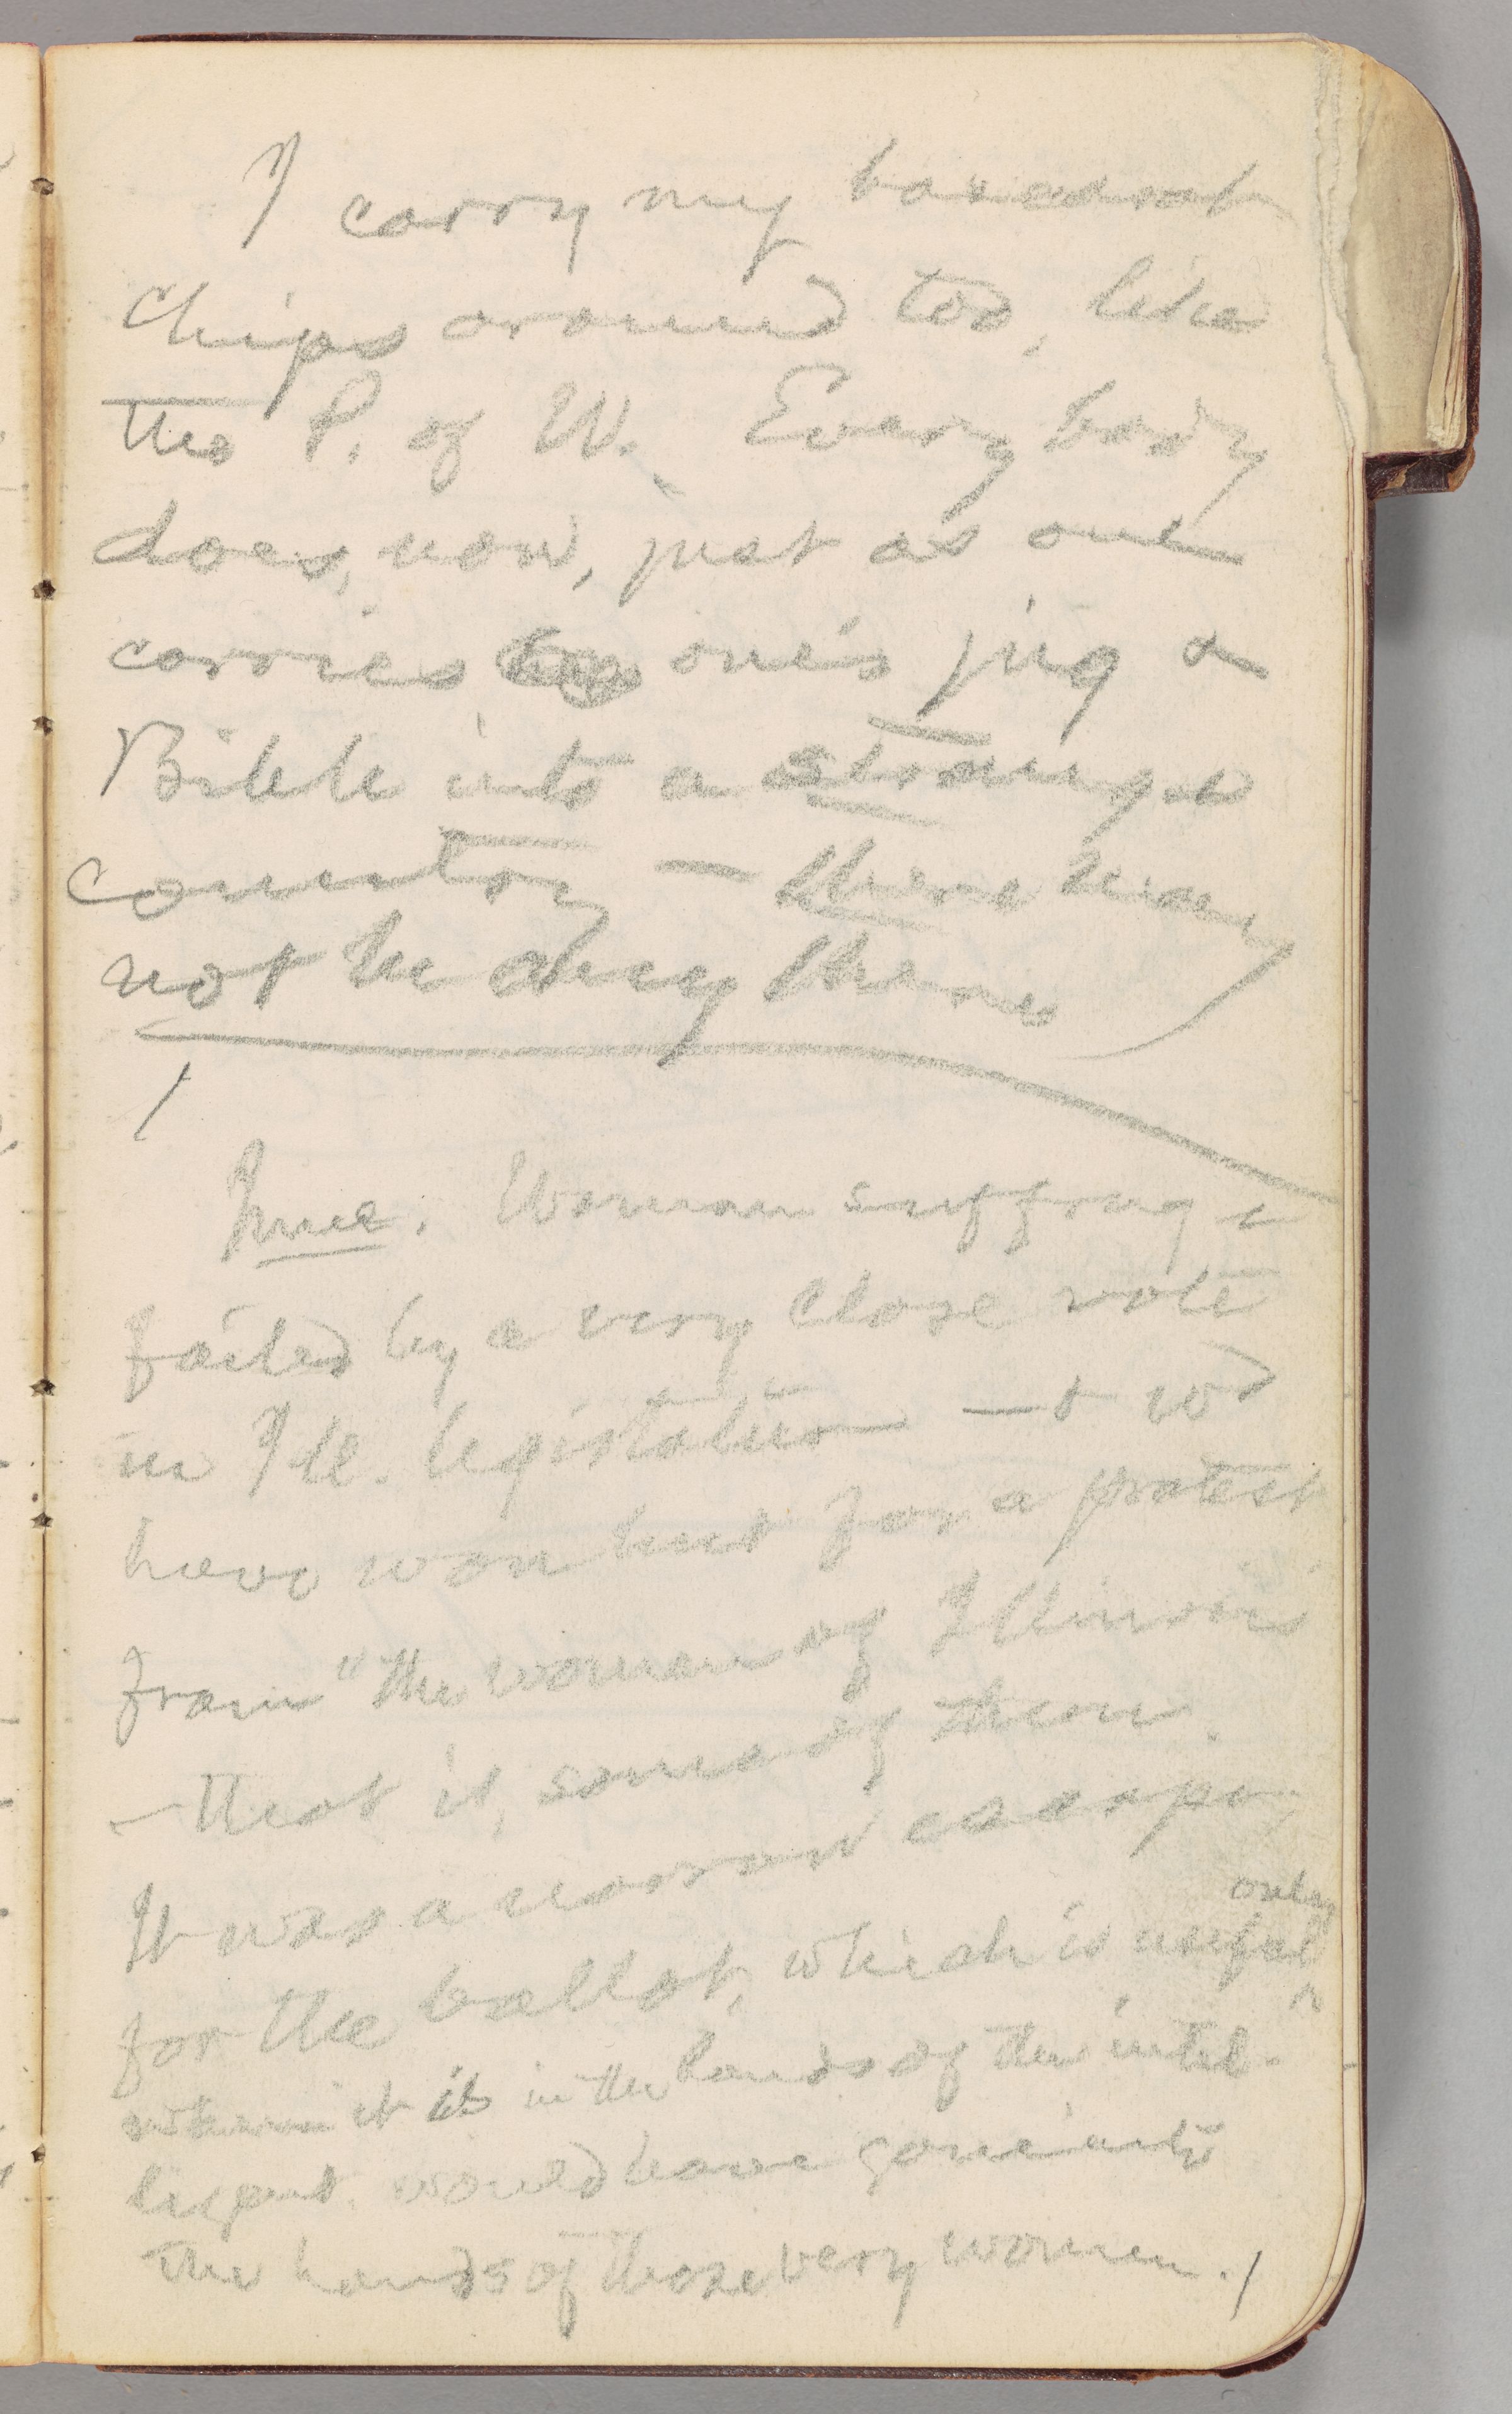 I carry my baccarat
chips around too, like
the P. of W. Everybody
does, now, just as one
carries one's jug &
Bible into a strange
country — there may
not be any there
June. Woman suffrage
failed by a very close vote
in Ill. legislature — & wd
have won but for a protest
from "the women of Illinois
— that is, some of them.
It was a narrow escape
only
for the ballot, which is useful
when it is in the hands of the intel-
ligent, would have gone into
the hands of those very women.